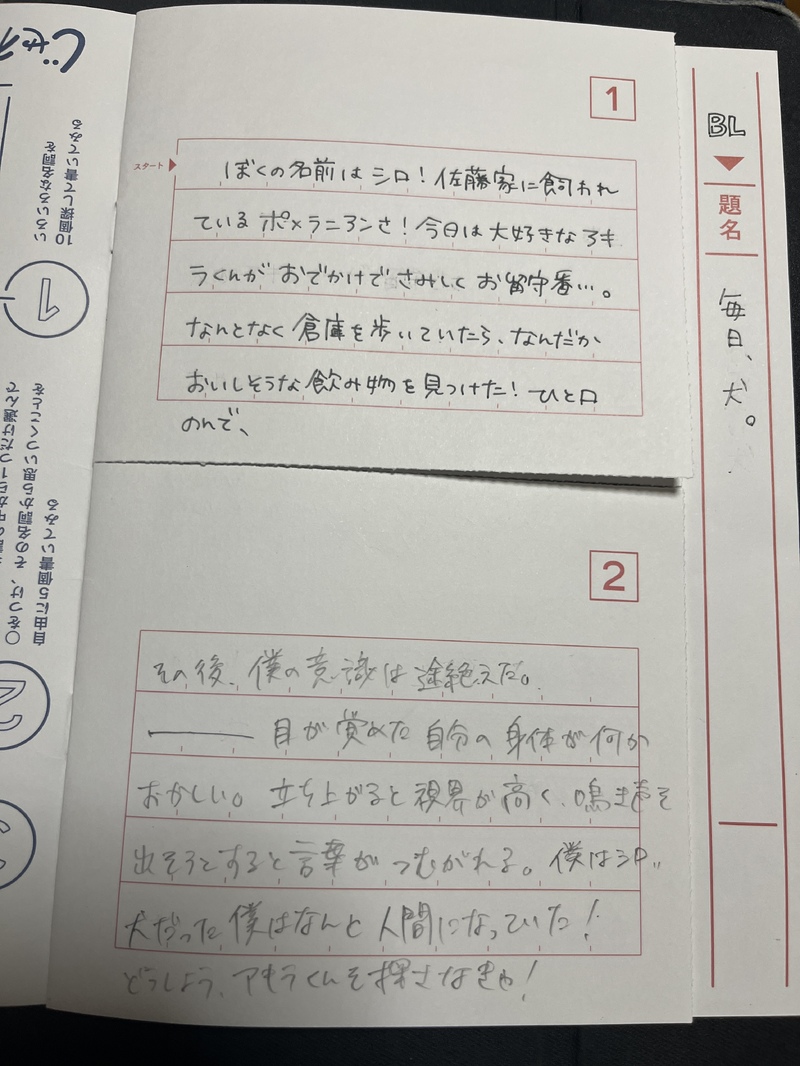 BL
題名
毎日、犬。
1
スタート
ぼくの名前はシロ！佐藤家に飼われ
ているポメラニアンさ！今日は大好きなアキ
ラくんがおでかけでさみしくお留守番…。
なんとなく倉庫を歩いていたら、なんだか
おいしそうな飲み物を見つけた！ひと口
のんで、
2
その後、僕の意識は途絶えた。
――― 目が覚めた自分の身体が何か
おかしい。立ち上がると視界が高く、鳴き声を
出そうとすると言葉がつむがれる。僕はシロ..
犬だった僕はなんと人間になっていた！
どうしよう、アキラくんを探さなきゃ！
じゃ
いろいろな名詞を
10個探して書いてみる
1
○をつけ、その名詞から思いつくことを
自由に5個書いてみる
2